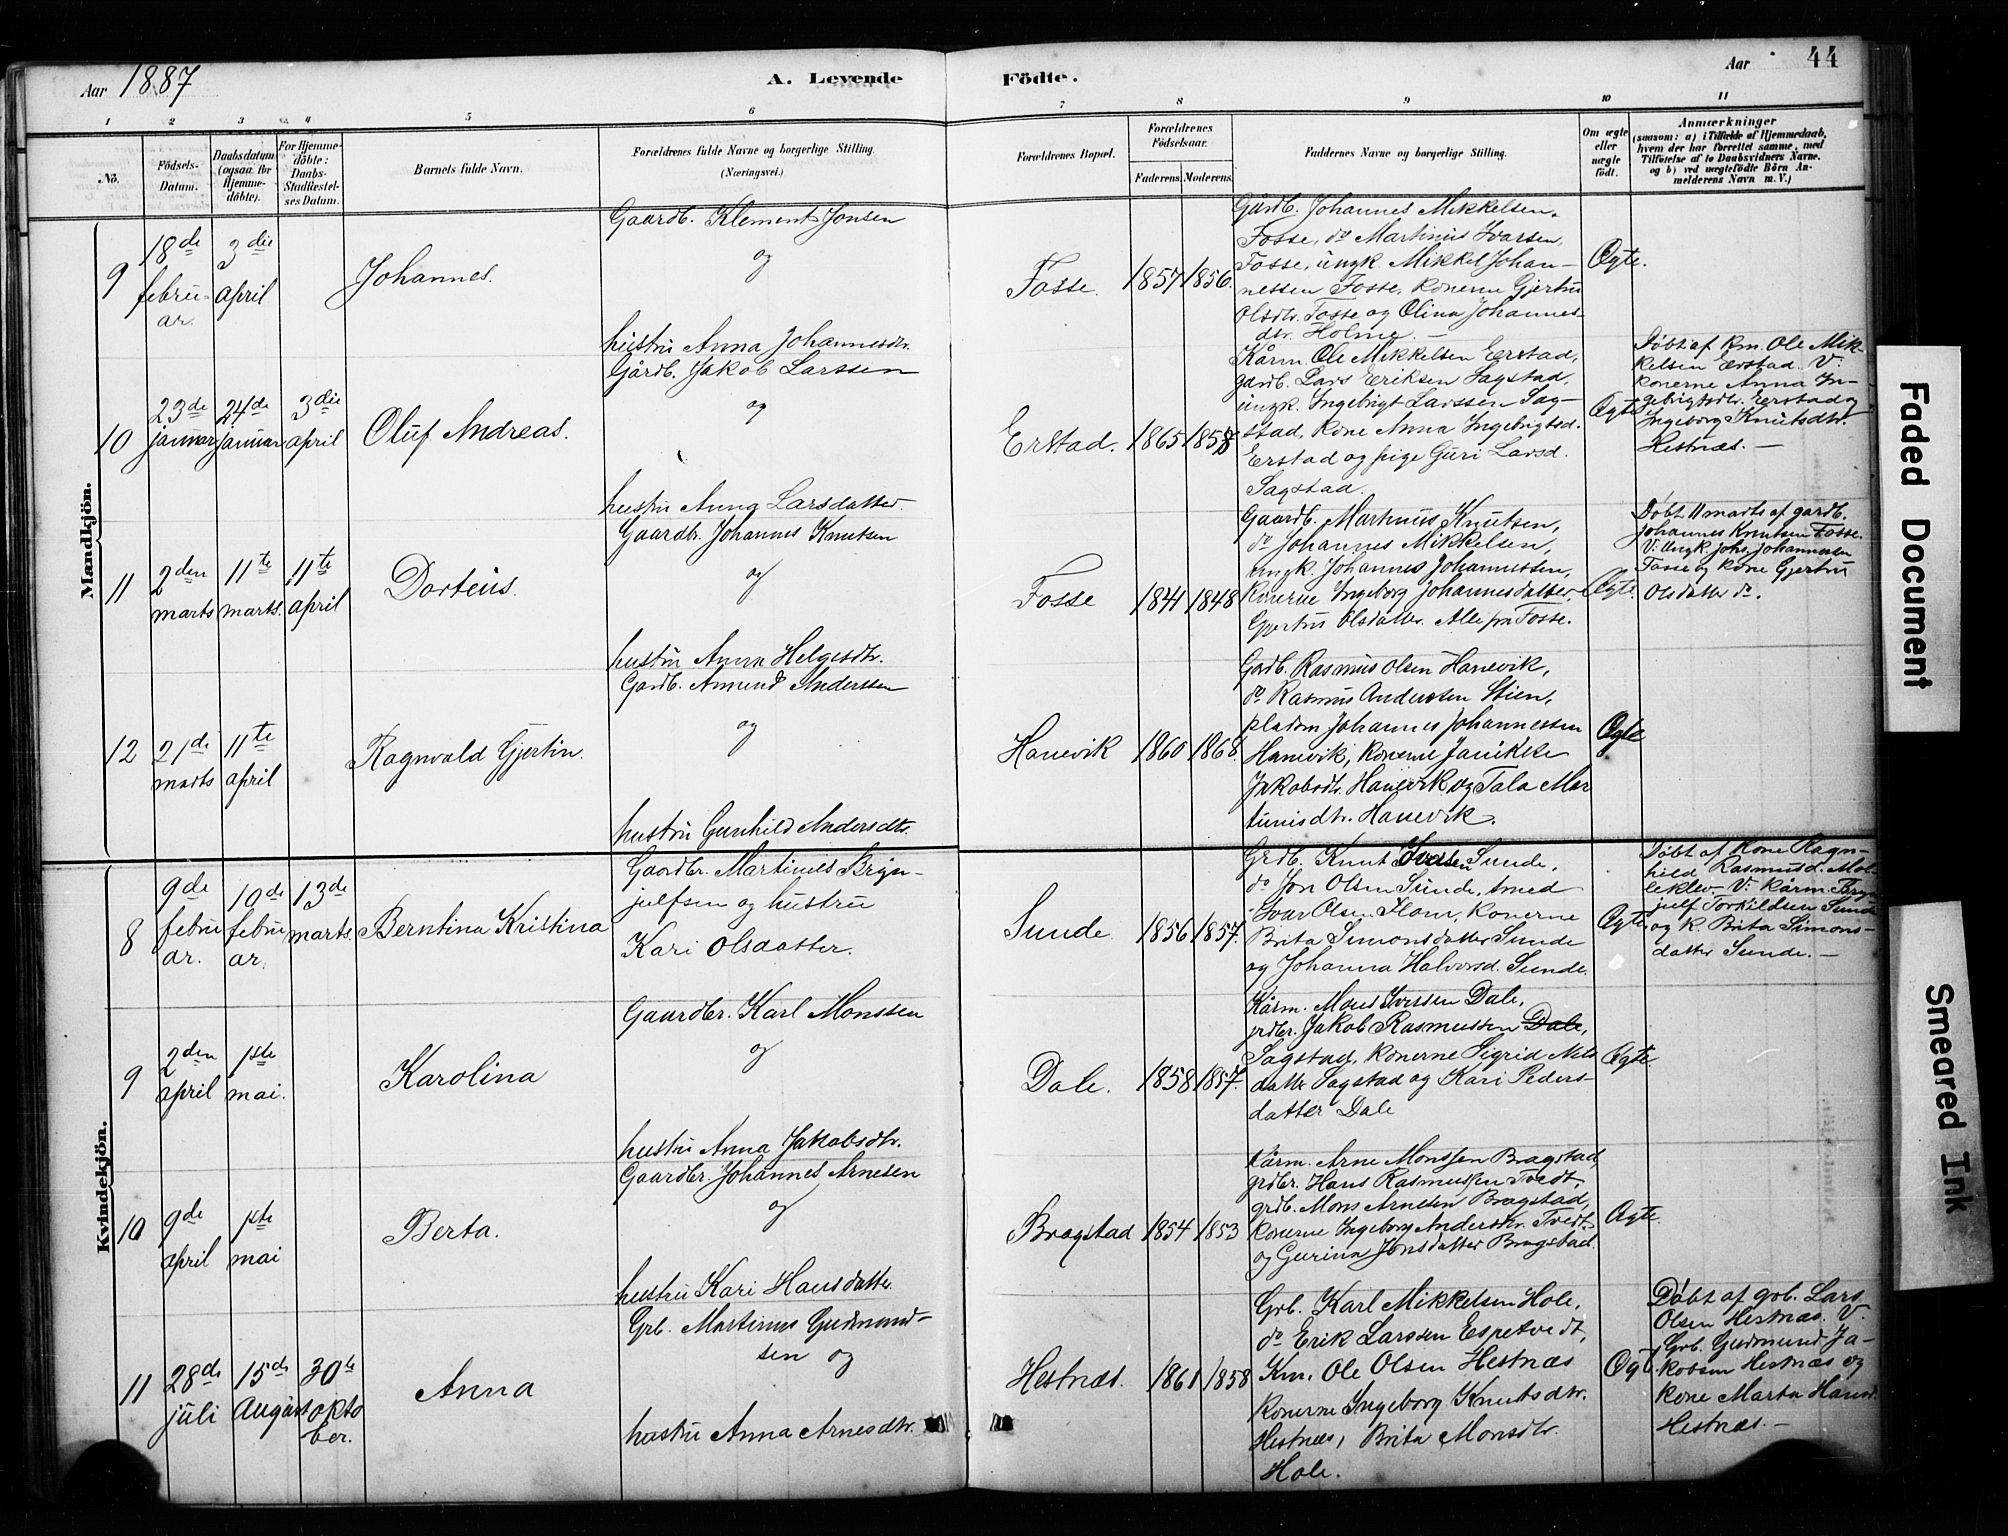 Aar 1887
A. Levende
Födte.
Aar
44
1 2 3 4 5 6 7 8 9 10 11
No.
Födsels-
Datum.
Daabsdatum
(ogsaa for
Hjemme-
döbte).
For Hjemme-
döbte:
Daabs-
Stadfæstel-
ses Datum.
Barnets fulde Navn.
Forældrenes fulde Navne og borgerlige Stilling.
(Næringsvei.)
Forældrenes Bopæl.
Forældrenes
Födselsaar.
Faderens. Moderens.
Faddernes Navne og borgerlige Stilling.
Om ægte
eller
uægte
födt.
Anmærkninger
(saasom: a) i Tilfælde af Hjemmedaab,
hvem der har forrettet samme, med
Tilföielse af to Daabsvidners Navne.
og b) ved uægtefödte Börn An-
melderens Navn m. V.)
Mandkjön.
9
18de
febru-
ar.
3die
april
Johannes.
Gaardb. Klement Jonsen
og
hustru Anna Johannesdtr.
Fosse.
1857 1856.
Gardb. Johannes Mikkelsen
Fosse, do Martinus Ivarsen,
Fosse, ungk. Mikkel Johan-
nessen Fosse, konerne Gjertru
Olsdtr. Fosse og Olina Johannes-
dtr. Holme. -
Ægte.
10
23de
januar
24de
januar
3die
april
Oluf Andreas.
Gårdb. Jakob Larssen
og
hustru Anna Larsdatter.
Erstad.
1865 1858
Kårm. Ole Mikkelsen Erstad,
gardb. Lars Eriksen Sagstad,
ungk. Ingebrigt Larssen Sag-
stad, kone Anna Ingebrigtsd.
Erstad og pige Guri Larsd.
Sagstad.
Ægte
Døbt af km. Ole Mik-
kelsen Erstad. V.
konerne Anna In-
gebrigtsdtr. Erstad og
Ingeborg Knutsdtr.
Hestnæs. -
11
2den
marts
11te
marts.
11te
april
Dorteus.
Gaardbr. Johannes Knutsen
og
hustru Anna Helgesdtr.
Fosse
1841 1848
Gaardb. Martinus Knutsen,
do Johannes Mikkelsen,
ungk. Johannes Johannessen,
konerne Ingeborg Johannesdatter,
Gjertru Olsdatter. Alle fra Fosse.
Ægte.
Døbt 11 marts af gardb.
Johannes Knutsen Fosse.
V: Ungk. Johs. Johannessen
Fosse og kone Gjertru
Olsdatter do.
12
21de
marts
11te
april
Ragnvald Gjertin.
Gardb. Amund Anderssen
og
hustru Gunhild Andersdtr.
Hanevik
1860 1868.
Gardb. Rasmus Olsen Hanevik,
do Rasmus Andersen Stien,
pladsm Johannes Johannessen
Hanevik, konerne Janikke
Jakobsdtr. Hanevik og Tala Mar
tinusdtr. Hanevik.
Ægte
Kvindekjön.
8
9de
febru
ar.
10de
febru
ar.
13de
marts.
Berntina Kristina
Gaardbr. Martinus Bryn-
julfsen og hustru
Kari Olsdatter.
Sunde
1856 1857.
Grdb. Knut Ivarsen Sunde,
do Jon Olsen Sunde,
Ivar Olsen, konerne
Brita Simonsdatter Sunde
og Johanna Halvorsd. Sunde.
Ægte
Døbt af kone Ragn-
hild Rasmusd. Mol-
leklev. V: kårm. Bryn
julf Torkildsen Sunde
og k. Brita Simons-
datter Sunde. -
9
2den
april
1ste
mai.
Karolina
Gaardbr. Karl Monssen
og
hustru Anna Jakobsdtr.
Dale.
1858 1857.
Kårm. Mons Iverssen Dale,
grdbr. Jakob Rasmussen Dale,
Sagstad, konerne Sigrid Nils
datter Sagstad og Kari Peders-
datter Dale
Ægte.
10
9de
april
1ste
mai
Berta.
Gaardbr. Johannes Arnesen
og
hustru Kari Hansdatter
Bragstad
1854 1853
Kårm. Arne Monssen Bragstad,
grdbr. Hans Rasmussen Tvedt,
grdb. Mons Arnesen Bragstad,
konerne Ingeborg Andersdtr. Tvedt
og Gurina Jonsdatter Bragstad.
Ægte.
11
28de
juli
15de
August
30te
okto
ber.
Anna
Grb. Martinus Gudmund-
sen og
hustru Anna Arnesdtr.
Hestnæs.
1861 1858
Grb. Karl Mikkelsen Hole,
do Erik Larssen Espetvedt,
Km. Ole Olsen Hestnæs
konerne Ingeborg Knutsdtr.
Hestnæs, Brita Monsdtr.
Hole.
Ægt.
Døbt af grb. Lars
Olsen Hestnæs. V.
Grb. Gudmund Ja-
kobsen Hestnæs og
kone Marta Hansd.
Hestnæs. -
Faded Document
Smeared Ink